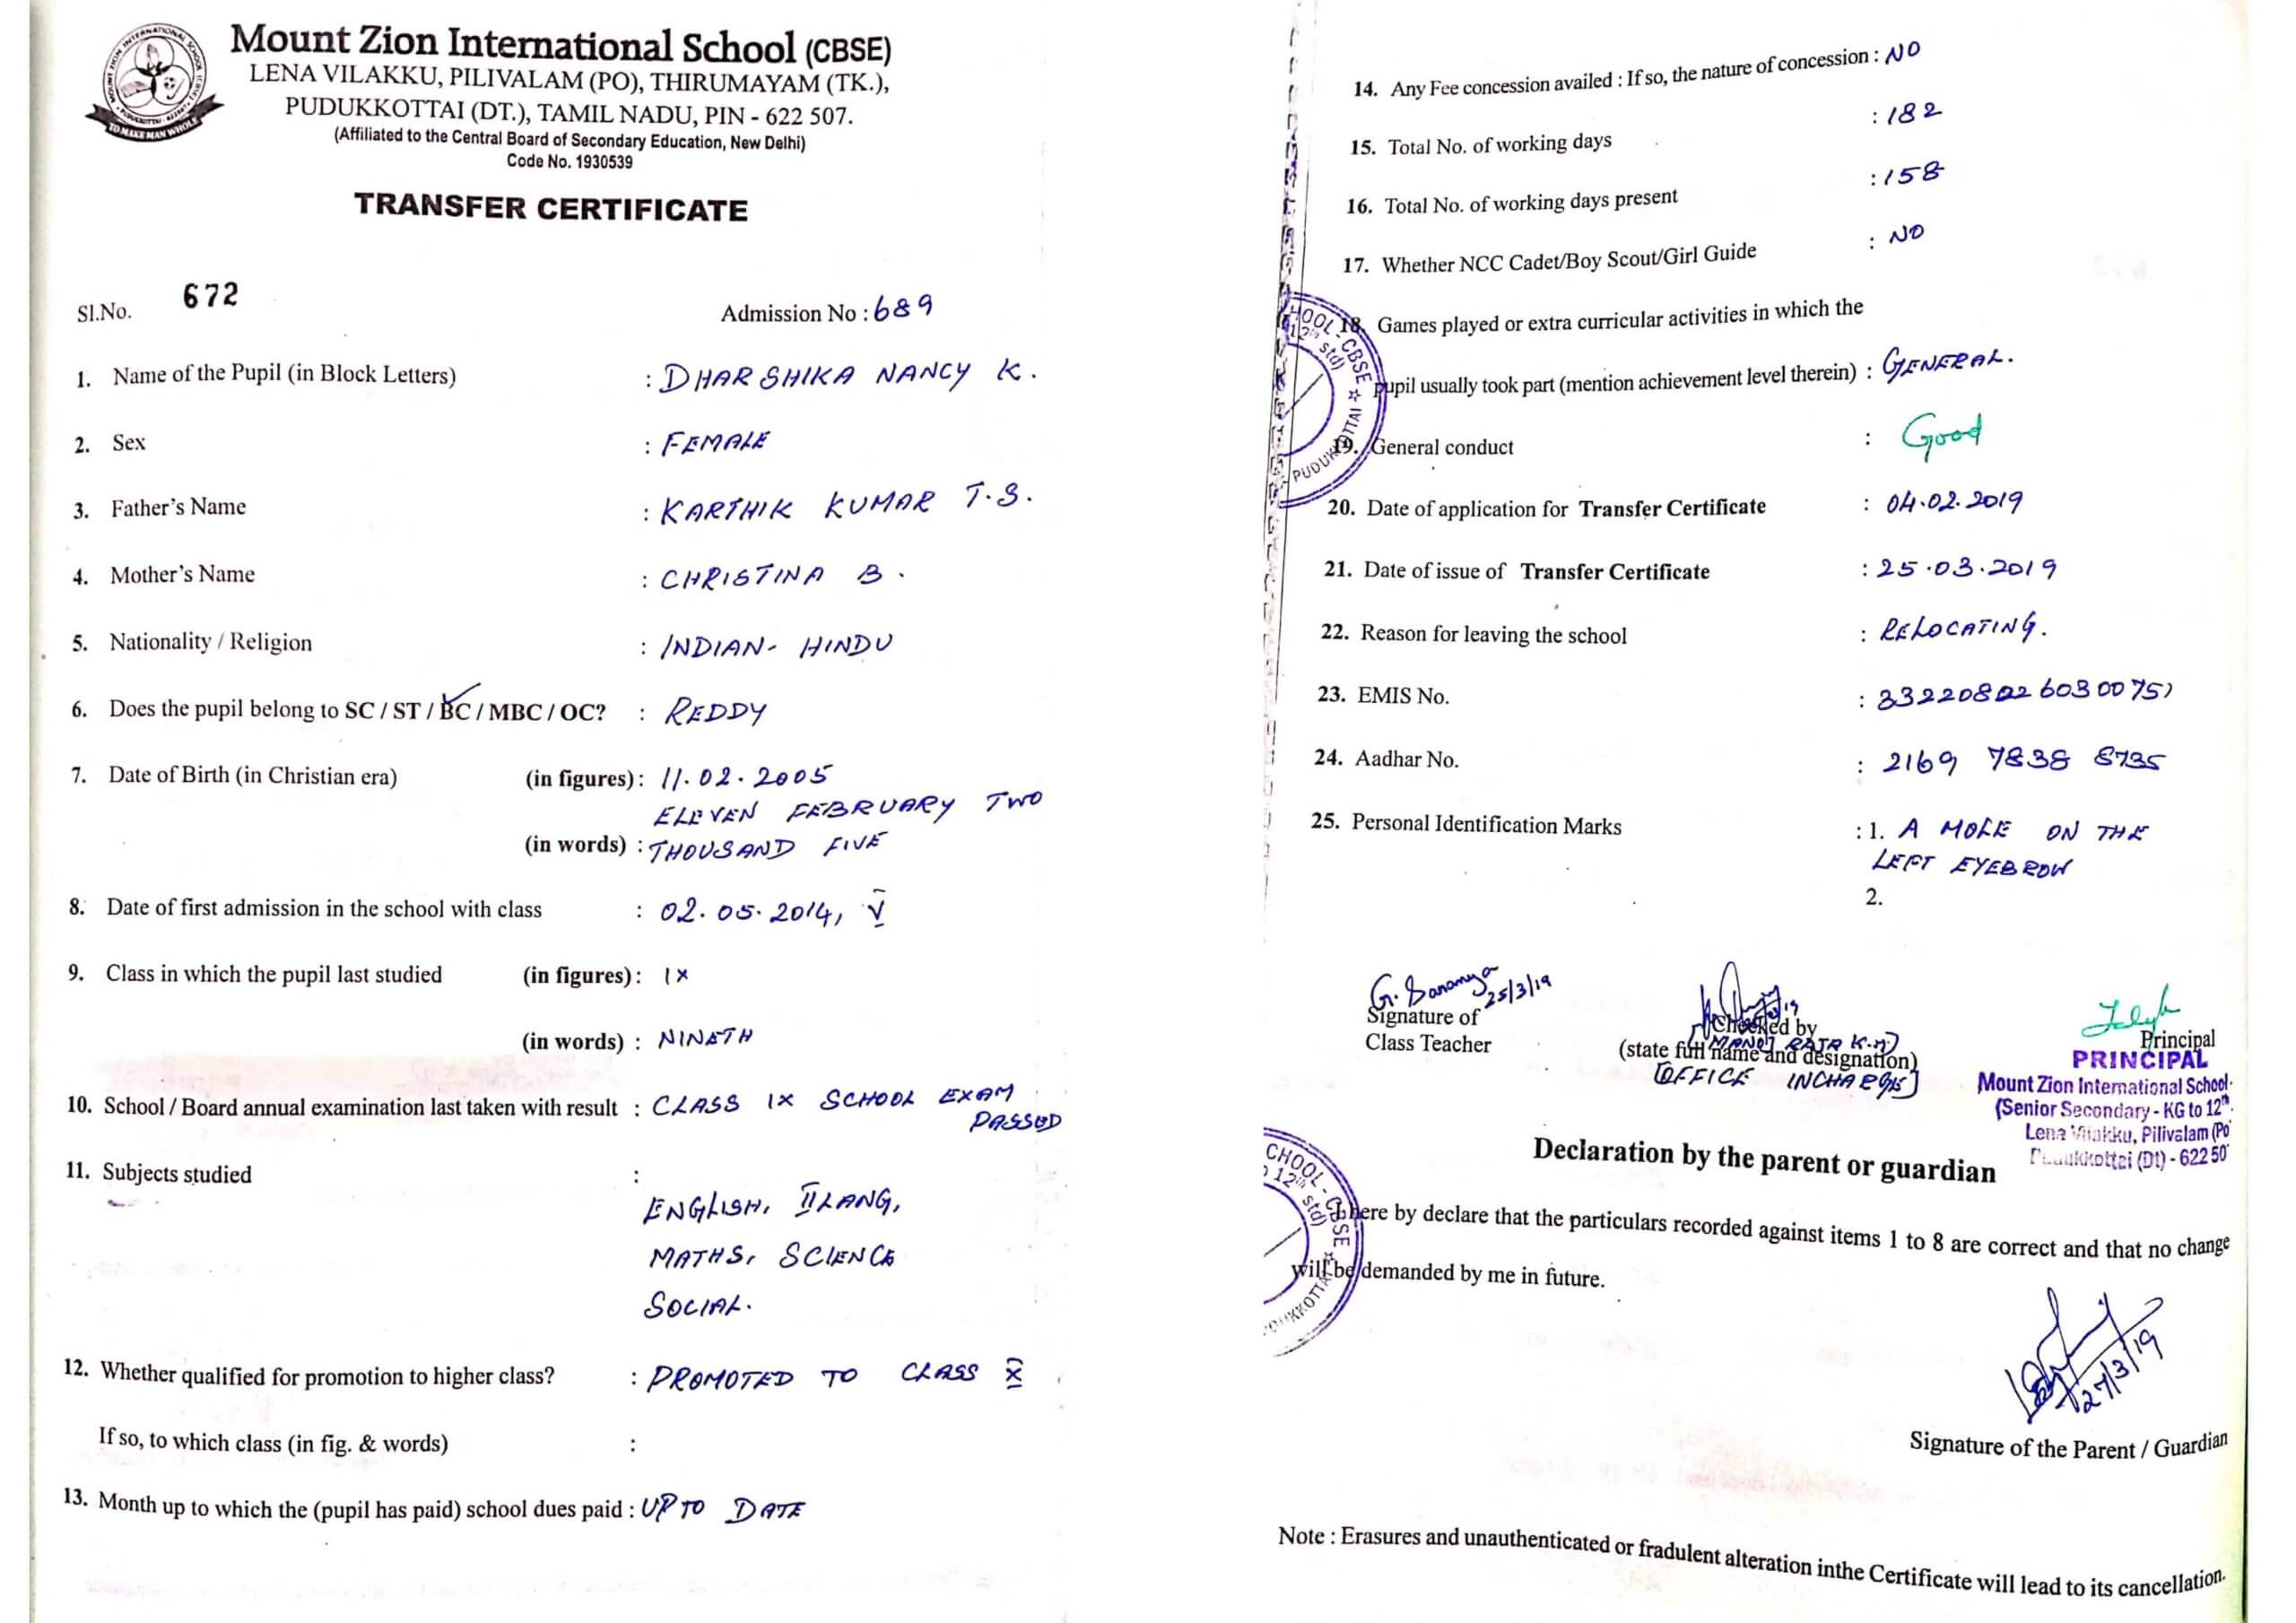 Mount Zion International School (CBSE)
LENA VILAKKU, PILIVALAM (PO), THIRUMAYAM (TK.),
PUDUKKOTTAI (DT.), TAMIL NADU, PIN - 622 507.
(Affiliated to the Central Board of Secondary Education, New Delhi)
Code No. 1930539
TO MAKE MAN WHOLE
TRANSFER CERTIFICATE
Sl.No. 672 Admission No : 689
1. Name of the Pupil (in Block Letters) : DHARSHIKA NANCY K.
2. Sex : FEMALE
3. Father's Name : KARTHIK KUMAR T.S.
4. Mother's Name : CHRISTINA B.
5. Nationality / Religion : INDIAN- HINDU
6. Does the pupil belong to SC / ST / BC / MBC / OC? : REDDY
7. Date of Birth (in Christian era) (in figures) : 11.02.2005
ELEVEN FEBRUARY TWO
(in words) : THOUSAND FIVE
8. Date of first admission in the school with class : 02.05.2014, V
9. Class in which the pupil last studied (in figures) : IX
(in words) : NINETH
10. School / Board annual examination last taken with result : CLASS IX SCHOOL EXAM
PASSED
11. Subjects studied :
ENGLISH, II LANG,
MATHS, SCIENCE
SOCIAL.
12. Whether qualified for promotion to higher class? : PROMOTED TO CLASS X
If so, to which class (in fig. & words) :
13. Month up to which the (pupil has paid) school dues paid : UP TO DATE
14. Any Fee concession availed : If so, the nature of concession : NO
15. Total No. of working days : 182
16. Total No. of working days present : 158
17. Whether NCC Cadet/Boy Scout/Girl Guide : NO
18. Games played or extra curricular activities in which the
pupil usually took part (mention achievement level therein) : GENERAL.
19. General conduct : Good
20. Date of application for Transfer Certificate : 04.02.2019
21. Date of issue of Transfer Certificate : 25.03.2019
22. Reason for leaving the school : RELOCATING.
23. EMIS No. :
24. Aadhar No. : 2169 7838 8735
25. Personal Identification Marks : 1. A MOLE ON THE
LEFT EYEBROW
2.
G. Saranya 25/3/19
Signature of
Class Teacher
Checked by
MANOJ RAJA K.M)
(state full name and designation)
[OFFICE INCHARGE]
Principal
PRINCIPAL
Mount Zion International School
(Senior Secondary - KG to 12th
Lena Vilakku, Pilivalam (Po
Pudukkottai (Dt) - 622 50
Declaration by the parent or guardian
I here by declare that the particulars recorded against items 1 to 8 are correct and that no change
will be demanded by me in future.
27/3/19
Signature of the Parent / Guardian
Note : Erasures and unauthenticated or fradulent alteration inthe Certificate will lead to its cancellation.